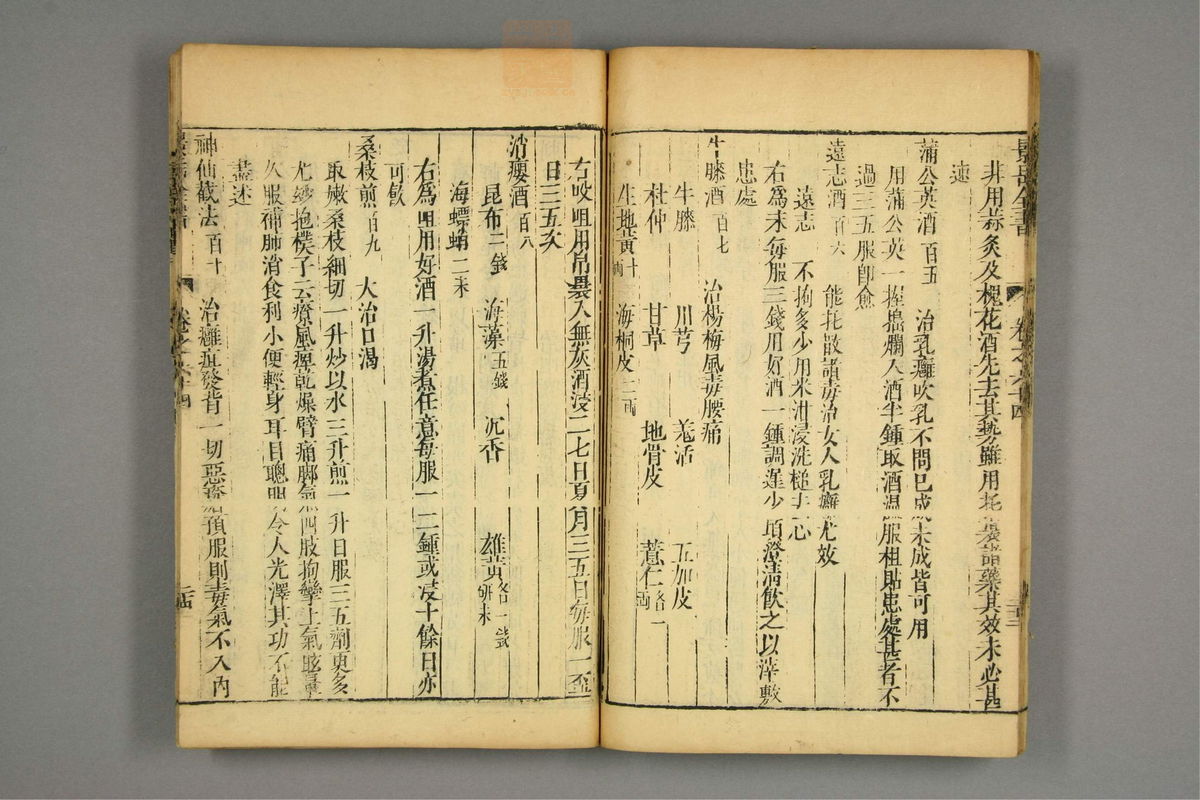 景岳全書 卷之六十四
非用蒜灸及槐花酒先去其勢雖用托裏諸藥其效未必甚
速
蒲公英酒 百五 治乳癰吹乳不問已成未成皆可用
用蒲公英一握搗爛入酒半鍾取酒溫服柤貼患處甚者不
過三五服即愈
遠志酒 百六 能托散諸毒治女人乳癰尤效
遠志 不拘多少用米泔浸洗槌去心
右為末每服三錢用好酒一鍾調遲少頃澄清飲之以滓敷
患處
牛膝酒 百七 治楊梅風毒腰痛
牛膝 川芎 羌活 五加皮
杜仲 甘草 地骨皮 薏仁各一兩
生地黃十兩 海桐皮二兩
右㕮咀用帛裹入無灰酒浸二七日夏月三五日每服一盃
日三五次
消癭酒 百八
昆布三錢 海藻五錢 沉香 雄黃各一錢研末
海螵蛸二錢
右為咀用好酒一升湯煮任意每服一二鍾或浸十餘日亦
可飲
桑枝煎 百九 大治口渴
取嫩桑枝細切一升炒以水三升煎一升日服三五劑更多
尤妙抱樸子云療風痺乾燥臂痛腳氣四肢拘攣上氣眩暈
久服補肺消食利小便輕身耳目聰明令人光澤其功不能
盡述
神仙截法 百十 治癰疽發背一切惡瘡預服則毒氣不入內